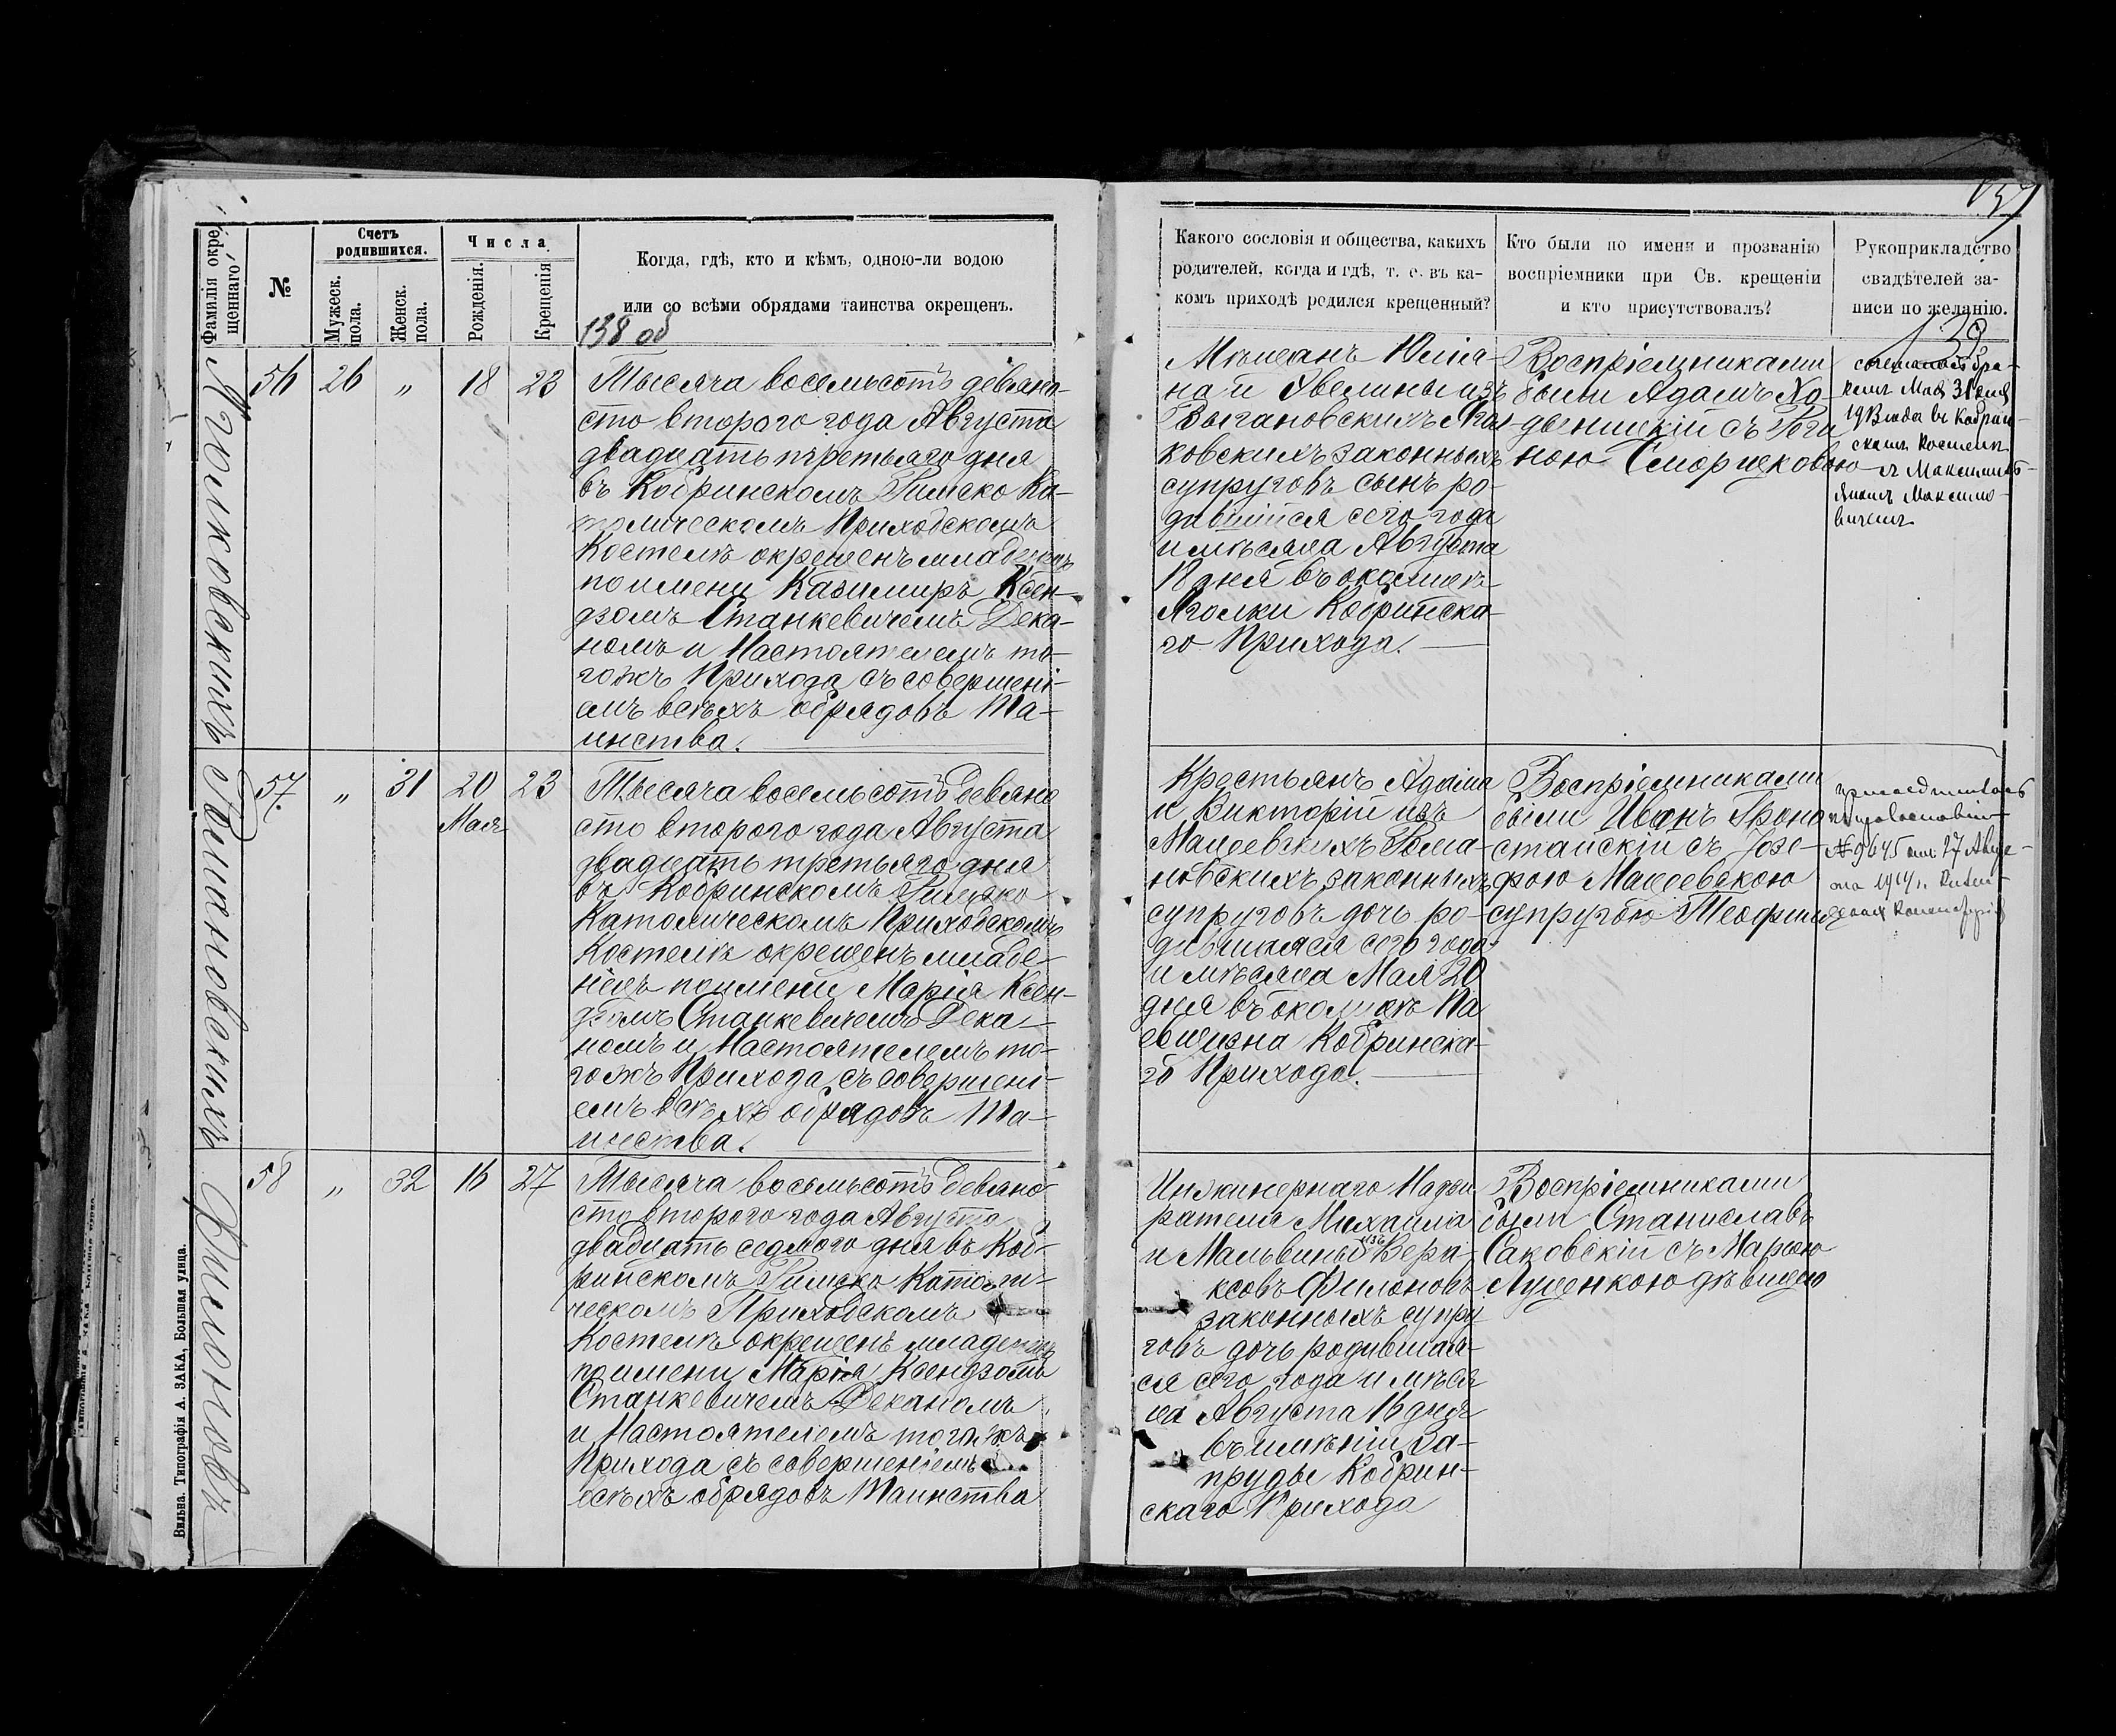 Фамилія окре-
щеннаго
№
Счетъ
родившихся.
Мужеск.
пола.
Женск.
пола.
Числа
Рожденія.
Крещенія
Когда, гдѣ, кто и кѣмъ, одною-ли водою
или со всѣми обрядами таинства окрещенъ.
138 об
56
26
"
18
23
Тысяча восемьсотъ девяно-
сто второго года Августа
двадцать третьяго дня
въ Кобринскомъ Римско Ка-
толическомъ Приходскомъ
Костелѣ окрещенъ младенецъ
по имени Казимиръ Ксен-
дзомъ Станкевичемъ Дека-
номъ и Настоятелемъ то-
гожъ Прихода съ совершені-
емъ всѣхъ обрядовъ Та-
инства.
Романовскихъ
57
"
31
20
Мая
23
Тысяча восемьсотъ девяно
сто второго года Августа
двадцать третьяго дня
въ Кобринскомъ Римско
Католическомъ Приходскомъ
Костелѣ окрещенъ младе-
нецъ по имени Марія Ксен-
дзомъ Станкевичемъ Дека-
номъ и Настоятелемъ то-
гожъ Прихода съ совершені-
емъ всѣхъ обрядовъ Та-
инства.
Филоновъ
58
"
32
16
27
Тысяча восемьсотъ девяно-
сто второго года Августа
двадцать седмого дня въ Коб-
ринскомъ Римско Католи-
ческомъ Приходскомъ
Костелѣ окрещенъ младенецъ
по имени Марія Ксендзомъ
Станкевичемъ Деканомъ
и Настоятелемъ тогожъ
Прихода съ совершеніемъ
всѣхъ обрядовъ Таинства
Вильна. Типографія А. ЗАКА, Большая улица.
Какого сословія и общества, какихъ
родителей, когда и гдѣ, т. е. въ ка-
комъ приходѣ родился крещенный?
Кто были по имени и прозванію
воспріемники при Св. крещеніи
и кто присутствовалъ?
Рукоприкладство
свидѣтелей за-
писи по желанію.
139
Мѣщанъ Юлія-
на и Эвелины изъ
законныхъ
супруговъ сынъ ро-
дившійся сего года
и мѣсяца Августа
18 дня въ околицѣ
Яголки Кобринска-
го Прихода.
Воспріемниками
были Адамъ Хо-
съ Реги
ною
Мая 31 дня
въ Кобрин-
скомъ Костелѣ
Крестьянъ Адама
и Викторіи изъ
Мацеевскихъ Рома-
новскихъ законныхъ
супруговъ дочь ро-
дившаяся сего года
и мѣсяца Мая 20
дня въ околицѣ Па
евщизна Кобринска-
го Прихода.
Воспріемниками
были Иванъ Гроно
стайскій съ Юзе-
фою Мацеевскою
супругою Теофила
№ 9645 27
1914 г.
Инжинернаго Надзи
рателя Михаила
и Мальвины изъ Вери-
ксовъ Филоновъ
законныхъ супру
говъ дочь родившая-
ся сего года и мѣся
ца Августа 16 дня
въ имѣніи За-
пруды Кобрин-
скаго Прихода
Воспріемниками
были Станиславъ
Саковскій съ Марьею
Луценкою дѣвицею